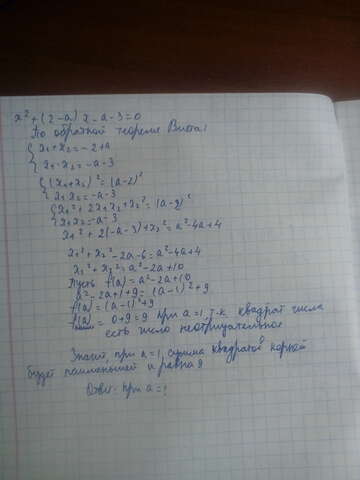 x² + (2-a)x - a - 3 = 0
По обратной теореме Виета:
{ x₁ + x₂ = -2 + a
{ x₁ · x₂ = -a - 3
{ (x₁ + x₂)² = (a-2)²
{ x₁x₂ = -a - 3
{ x₁² + 2x₁x₂ + x₂² = (a-2)²
{ x₁x₂ = -a - 3
x₁² + 2(-a-3) + x₂² = a² - 4a + 4
x₁² + x₂² - 2a - 6 = a² - 4a + 4
x₁² + x₂² = a² - 2a + 10
Пусть f(a) = a² - 2a + 10
a² - 2a + 1 + 9 = (a-1)² + 9
f(a) = (a-1)² + 9
f(a) = 0 + 9 = 9 при a = 1, т.к. квадрат числа
есть число неотрицательное
Значит, при a = 1, сумма квадратов корней
будет наименьшей и равна 9
Ответ: при a = 1